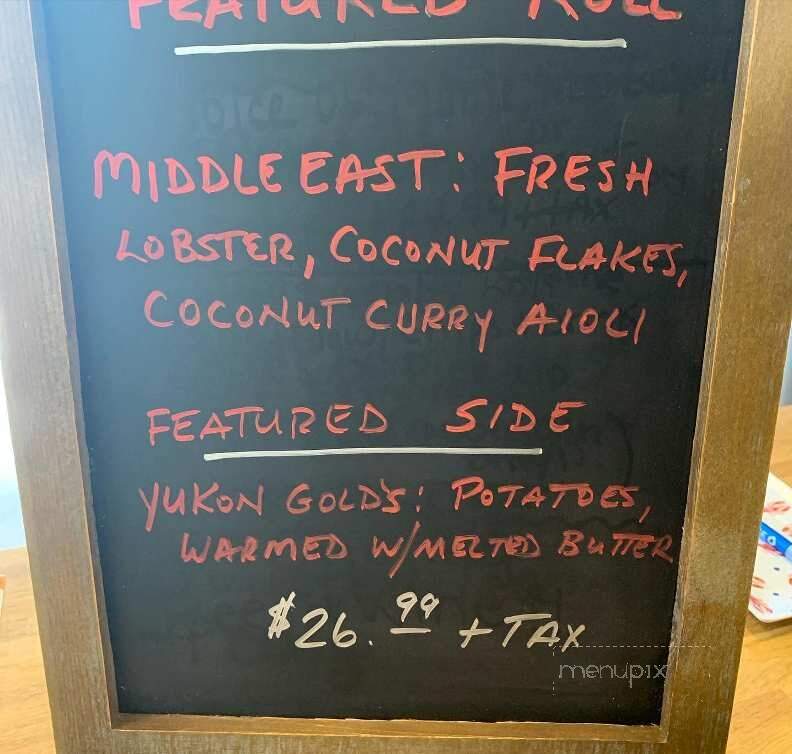 FEATURED ROLL
MIDDLE EAST: FRESH
LOBSTER, COCONUT FLAKES,
COCONUT CURRY AIOLI
FEATURED SIDE
YUKON GOLD'S: POTATOES,
WARMED W/MELTED BUTTER
$26.99 + TAX
menupix